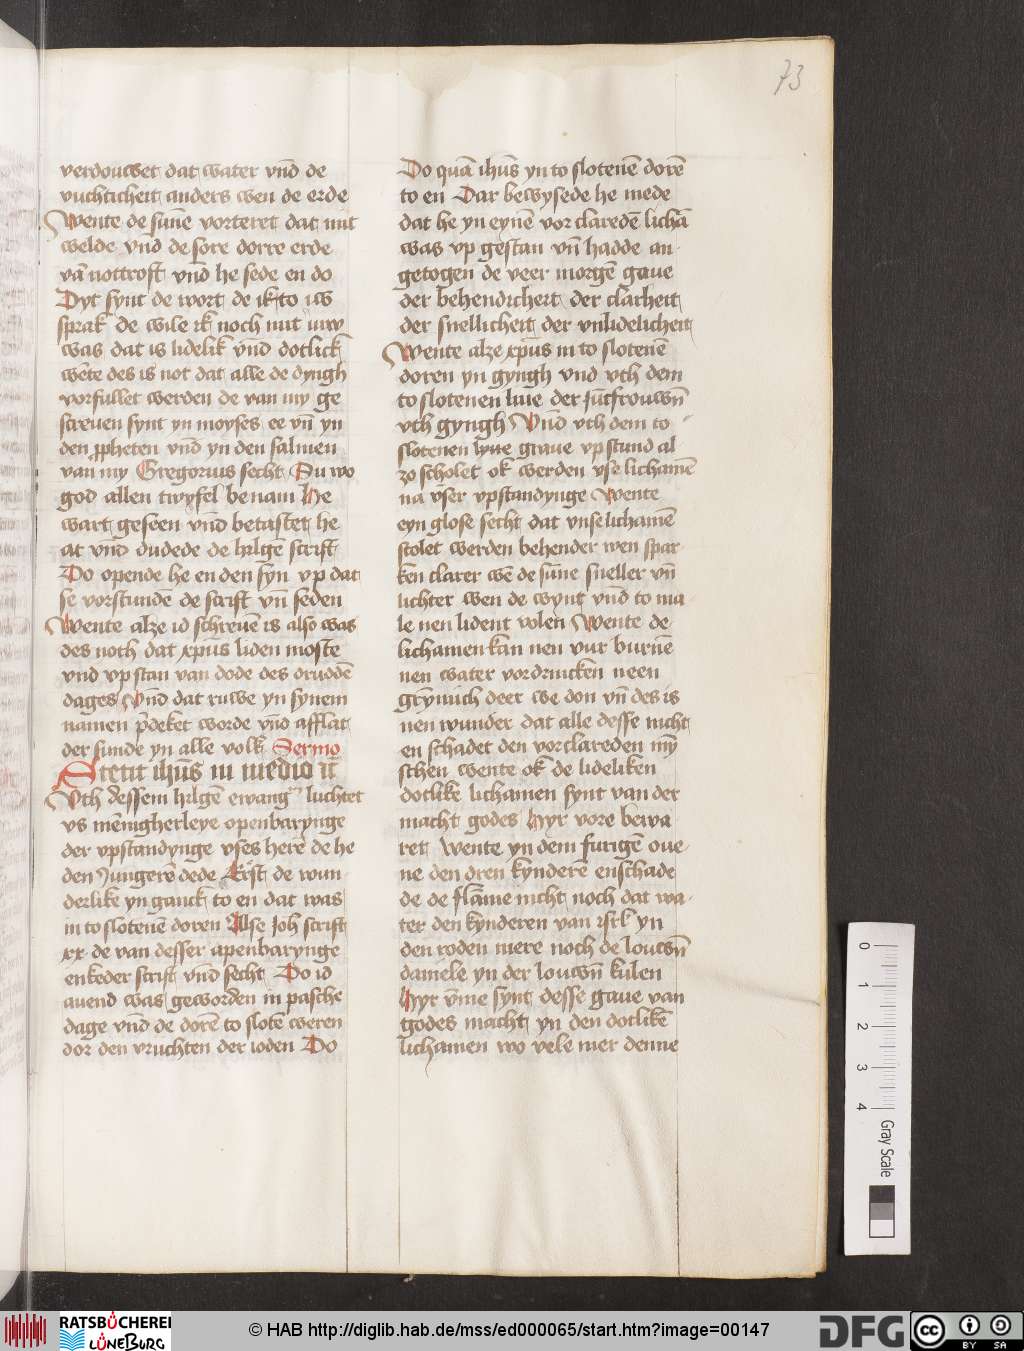 73
verdouwet dat water vn̄d de
vuchticheit anders wen de erde
Wente de sūne vorteret dat mit
welde vnd de sore dorre erde
vā nottroft vn̄d he sede en do
Dyt synt de wort de ik to iw
sprak de wile ik noch mit iuw
was dat is lidelik vn̄d dotlick
wēte des is not dat alle de dyngh
vorfullet werden de van my ge
screuen synt yn moyses ee vn̄ yn
den ꝓpheten vn̄d yn den salmen
van my Gregorius secht Su wo
god allen twyfel benam He
wart geseen vn̄d betastet he
at vn̄d dudede de hilgē scrift
Do opende he en den syn vp dat
se vorstunde de scrift vn̄ seden
Wente alze id schreuē is also was
des noch dat xp̄us liden moste
vnd vpstan van dode des druddē
dages Vn̄d dat ruwe yn synem
namen p̄deket worde vn̄d afflat
der sunde yn alle volk Sermo
Stetit ihūs in medio
Vth dessem hilgē ewang luchtet
vs mēnigherleye openbarynge
der vpstandynge vses herē de he
den Jungerē dede Erst de wun
derlike yn ganck to en dat was
in to slotenē doren Alse Joh scrift
xx de van desser apenbarynge
enkeder scrift vnd secht Do id
auend was geworden in pasche
dage vn̄d de dorē to slotē weren
dor den vruchten der ioden Do
Do quā ihūs yn to slotenē dorē
to en Dar bewysede he mede
dat he yn eynē vor claredē lichā
was vp gestan vn̄ hadde an
getogen de veer morgē gaue
der behendicheit der clarheit
der snellicheit der vnlidelicheit
Wente alze xp̄us in to slotenē
doren yn gyngh vnd vth dem
to slotenen liue der Jūcfrouwn̄
vth gyngh Vn̄d vth dem to
slotenen graue vpstund al
zo scholet ok werden vse lichamē
na vser vpstandynge Wente
eyn glose secht dat vnse lichamē
scolet werden behender wen spar
ken clarer wē de sūne sneller vn̄
lichter wen de wynt vnd to ma
le nen lident volen Wente de
lichamen kan nen vur burnē
nen water vordrincken neen
grymich deer we don vn̄ des is
nen wunder dat alle desse nicht
en schadet den vorclareden mȳ
schen wente ok de lideliken
dotlike lichamen synt van der
macht godes Hyr vore bewa
ret Wente yn dem furigē oue
ne den dren kynderē enschade
de de flāme nicht noch dat wa
ter den kynderen van isrl yn
den roden mere noch de louwn̄
daniele yn der louwn̄ kulen
Hyr vm̄e synt desse gaue van
godes macht yn den dotlikē
lichamen wo vele mer denne
0
1
2
3
4
Gray Scale
RATSBÜCHEREI
LÜNEBURG
© HAB http://diglib.hab.de/mss/ed000065/start.htm?image=00147
DFG
cc
BY SA